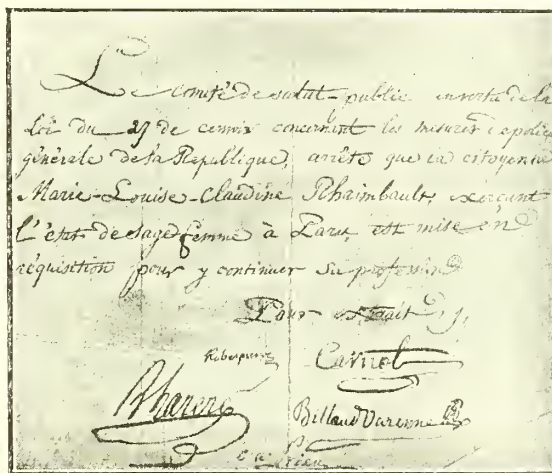 Le Comité de salut-public en vertu de la
Loi du 27 de ce mois concernant les mesures de police
générale de la République, arrête que la citoyenne
Marie-Louise-Claudine Rhaimbault, exerçant
l'état de sage femme à Paris, est mise en
réquisition pour y continuer sa profession
Pour extrait
Robespierre Carnot
B Barère
Billaud Varenne
C A Prieur